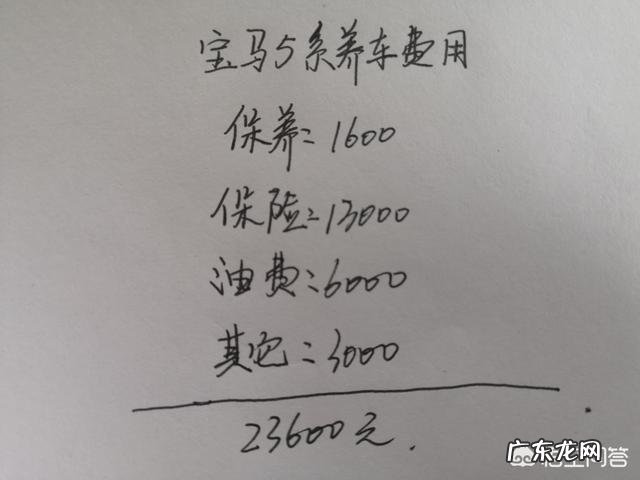 宝马5系养车费用
保养:1600
保险:13000
油费:6000
其它:3000
23600元.
广东龙网
悟空问答